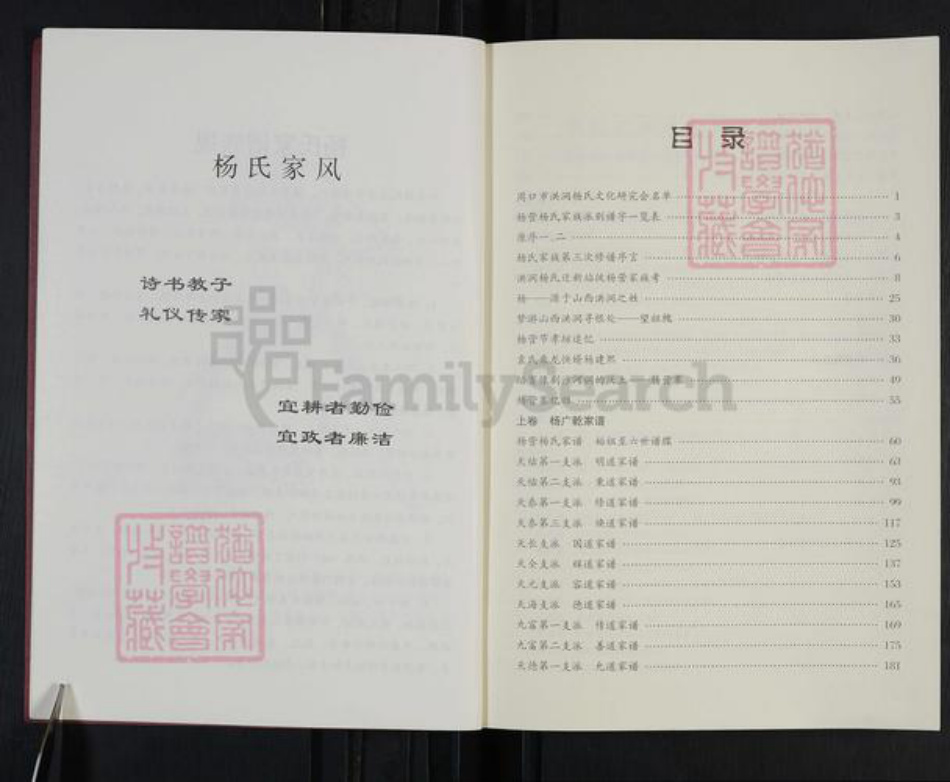 杨氏家风
诗书教子
礼仪传家
宜耕者勤俭
宜政者廉洁
目录
周口市洪洞杨氏文化研究会名单 1
杨营杨氏家族派别谱字一览表 3
原序一、二 4
杨氏家族第三次修谱序言 6
洪洞杨氏迁新站伏杨营家族考 8
杨——源于山西洪洞之姓 25
梦游山西洪洞寻根处——望祖槐 30
杨营节孝坊追忆 33
袁氏乘龙快婿杨建熙 36
49
杨营寨忆旧 55
上卷 杨广毅家谱
杨营杨氏家谱 始祖至六世谱牒 60
天临第一支派 明道家谱 63
天临第二支派 秉道家谱 93
天泰第一支派 修道家谱 99
天泰第三支派 焕道家谱 117
天长支派 国道家谱 125
天全支派 群道家谱 137
天元支派 容道家谱 153
天海支派 德道家谱 165
九富第一支派 传道家谱 169
九富第二支派 善道家谱 175
天德第一支派 允道家谱 181
FamilySearch